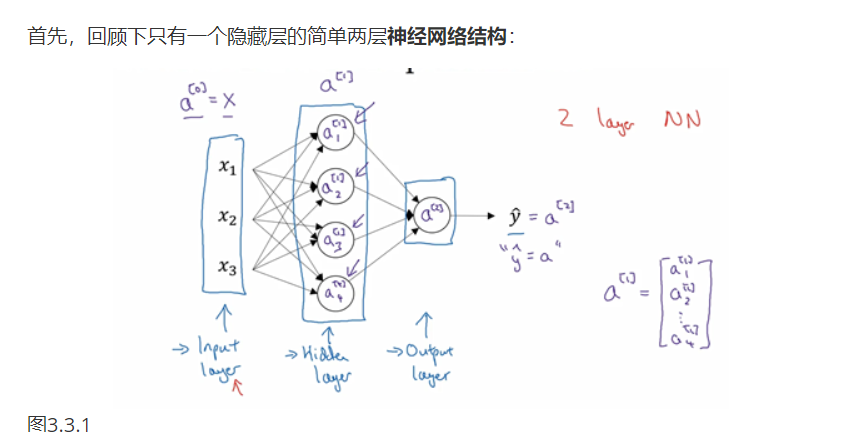 首先，回顾下只有一个隐藏层的简单两层神经网络结构：
a^[0] = x
a^[1]
2 layer NN
x₁
x₂
x₃
a₁^[1]
a₂^[1]
a₃^[1]
a₄^[1]
a^[2]
ŷ = a^[2]
"ŷ = a"
a^[1] = [a₁^[1]
a₂^[1]
⋮
a₄^[1]]
→ Input layer
→ Hidden layer
→ Output layer
图3.3.1